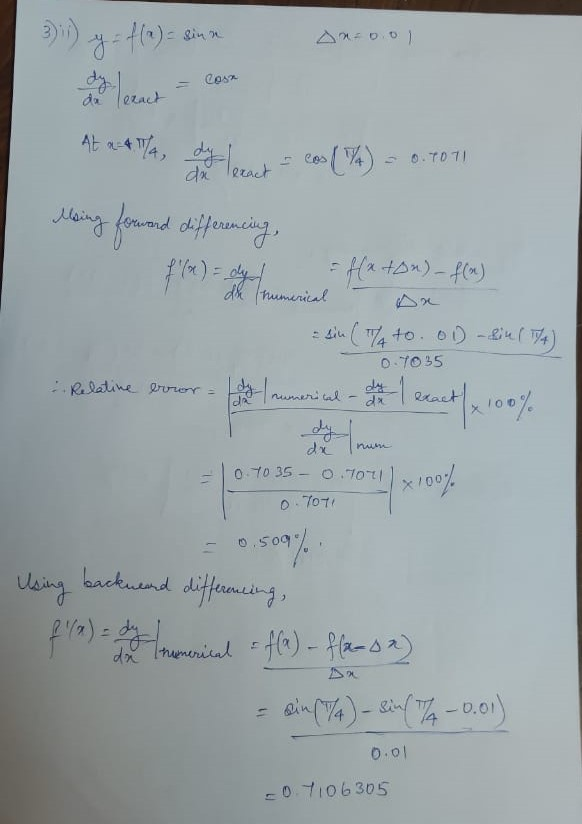 3)ii) y = f(x) = sinx Δx = 0.01
dy/dx |exact = cosx
At x = π/4, dy/dx |exact = cos(π/4) = 0.7071
Using forward differencing,
f'(x) = dy/dx |numerical = f(x+Δx) - f(x) / Δx
= sin(π/4 + 0.01) - sin(π/4) / 0.7035
∴ Relative error = | dy/dx |numerical - dy/dx |exact / dy/dx |num | × 100%
= | 0.7035 - 0.7071 / 0.7071 | × 100%
= 0.509%.
Using backward differencing,
f'(x) = dy/dx |numerical = f(x) - f(x-Δx) / Δx
= sin(π/4) - sin(π/4 - 0.01) / 0.01
= 0.7106305